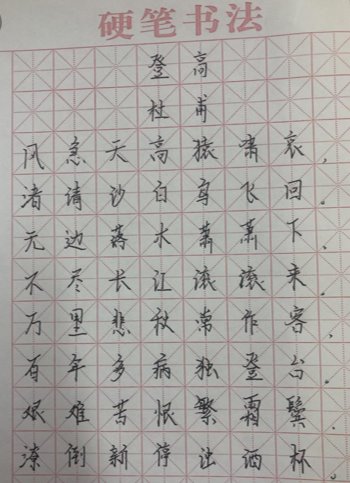 硬笔书法
登高
杜甫
风急天高猿啸哀，
渚清沙白鸟飞回。
无边落木萧萧下，
不尽长江滚滚来。
万里悲秋常作客，
百年多病独登台。
艰难苦恨繁霜鬓，
潦倒新停浊酒杯。